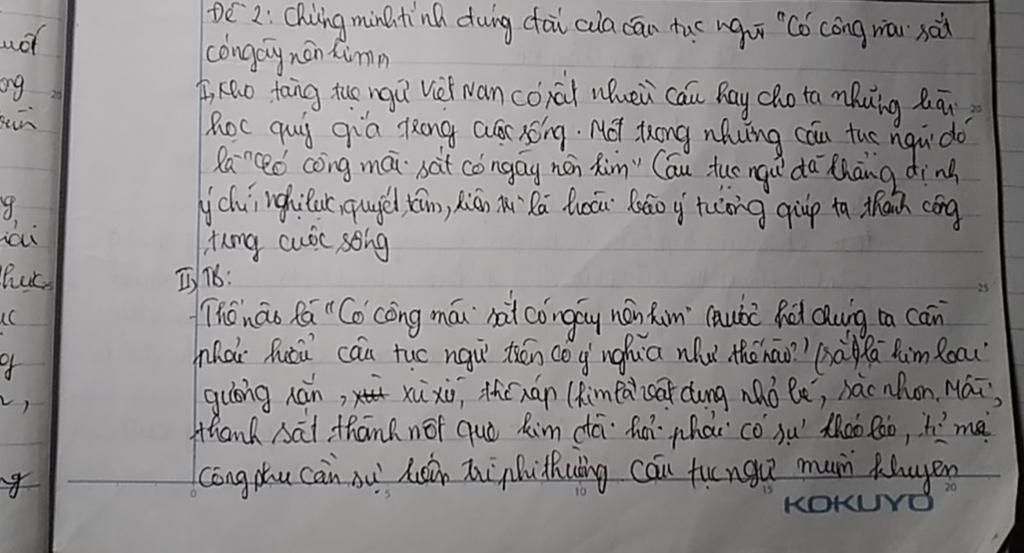 uốt
ong
g
Đề 2: Chứng minh tính đúng đắn của câu tục ngữ "Có công mài sắt
có ngày nên kim"
I, Kho tàng tục ngữ Việt Nam có rất nhiều câu hay cho ta những bài
học quý giá trong cuộc sống. Một trong những câu tục ngữ đó
là "Có công mài sắt có ngày nên kim" Câu tục ngữ đã khẳng định
ý chí, nghị lực, quyết tâm, kiên trì là hoài bão ý tưởng giúp ta thành công
trong cuộc sống
II, TB:
- Thế nào là "Có công mài sắt có ngày nên kim" trước hết chúng ta cần
phải hiểu câu tục ngữ trên có ý nghĩa như thế nào? (sắt) là kim loại
gương rắn, xù xì, thô ráp (kim là vật dụng nhỏ bé, sắc nhọn. Mài
thanh sắt thành một que kim đòi hỏi phải có sự khéo léo, tỉ mỉ
công phu cần sự kiên trì phi thường câu tục ngữ muốn khuyên
KOKUYO